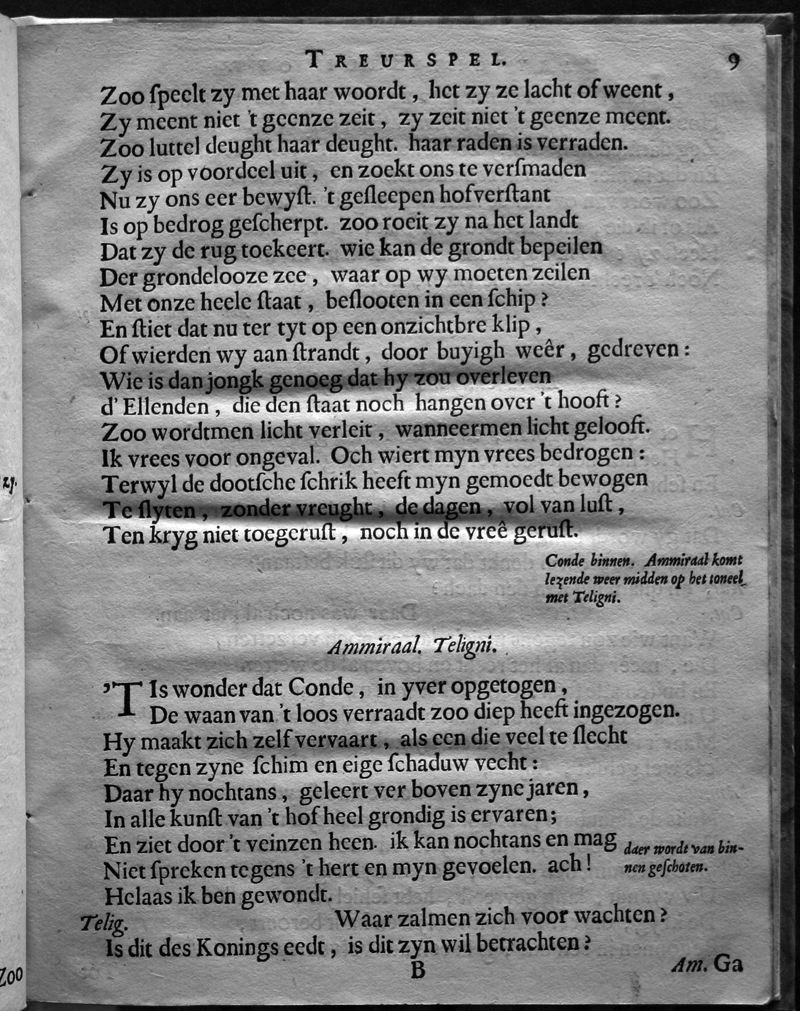 TREURSPEL. 9
Zoo ſpeelt zy met haar woordt, het zy ze lacht of weent,
Zy meent niet 't geenze zeit, zy zeit niet 't geenze meent.
Zoo luttel deught haar deught. haar raden is verraden.
Zy is op voordeel uit, en zoekt ons te verſmaden
Nu zy ons eer bewyſt. 't geſleepen hofverſtant
Is op bedrog geſcherpt. zoo roeit zy na het landt
Dat zy de rug toekeert. wie kan de grondt bepeilen
Der grondelooze zee, waar op wy moeten zeilen
Met onze heele ſtaat, beſlooten in een ſchip?
En ſtiet dat nu ter tyt op een onzichtbre klip,
Of wierden wy aan ſtrandt, door buyigh weêr, gedreven:
Wie is dan jongk genoeg dat hy zou overleven
d' Ellenden, die den ſtaat noch hangen over 't hooft?
Zoo wordtmen licht verleit, wanneermen licht gelooft.
Ik vrees voor ongeval. Och wiert myn vrees bedrogen:
Terwyl de dootſche ſchrik heeft myn gemoedt bewogen
Te ſlyten, zonder vreught, de dagen, vol van luſt,
Ten kryg niet toegeruſt, noch in de vreê geruſt.
Conde binnen. Ammiraal komt
lezende weer midden op het toneel
met Teligni.
Ammiraal. Teligni.
'T Is wonder dat Conde, in yver opgetogen,
De waan van 't loos verraadt zoo diep heeft ingezogen.
Hy maakt zich zelf vervaart, als een die veel te ſlecht
En tegen zyne ſchim en eige ſchaduw vecht:
Daar hy nochtans, geleert ver boven zyne jaren,
In alle kunſt van 't hof heel grondig is ervaren;
En ziet door 't veinzen heen. ik kan nochtans en mag daer wordt van bin-
Niet ſpreken tegens 't hert en myn gevoelen. ach! nen geſchoten.
Helaas ik ben gewondt.
Telig. Waar zalmen zich voor wachten?
Is dit des Konings eedt, is dit zyn wil betrachten?
B Am. Ga
zy.
Zoo